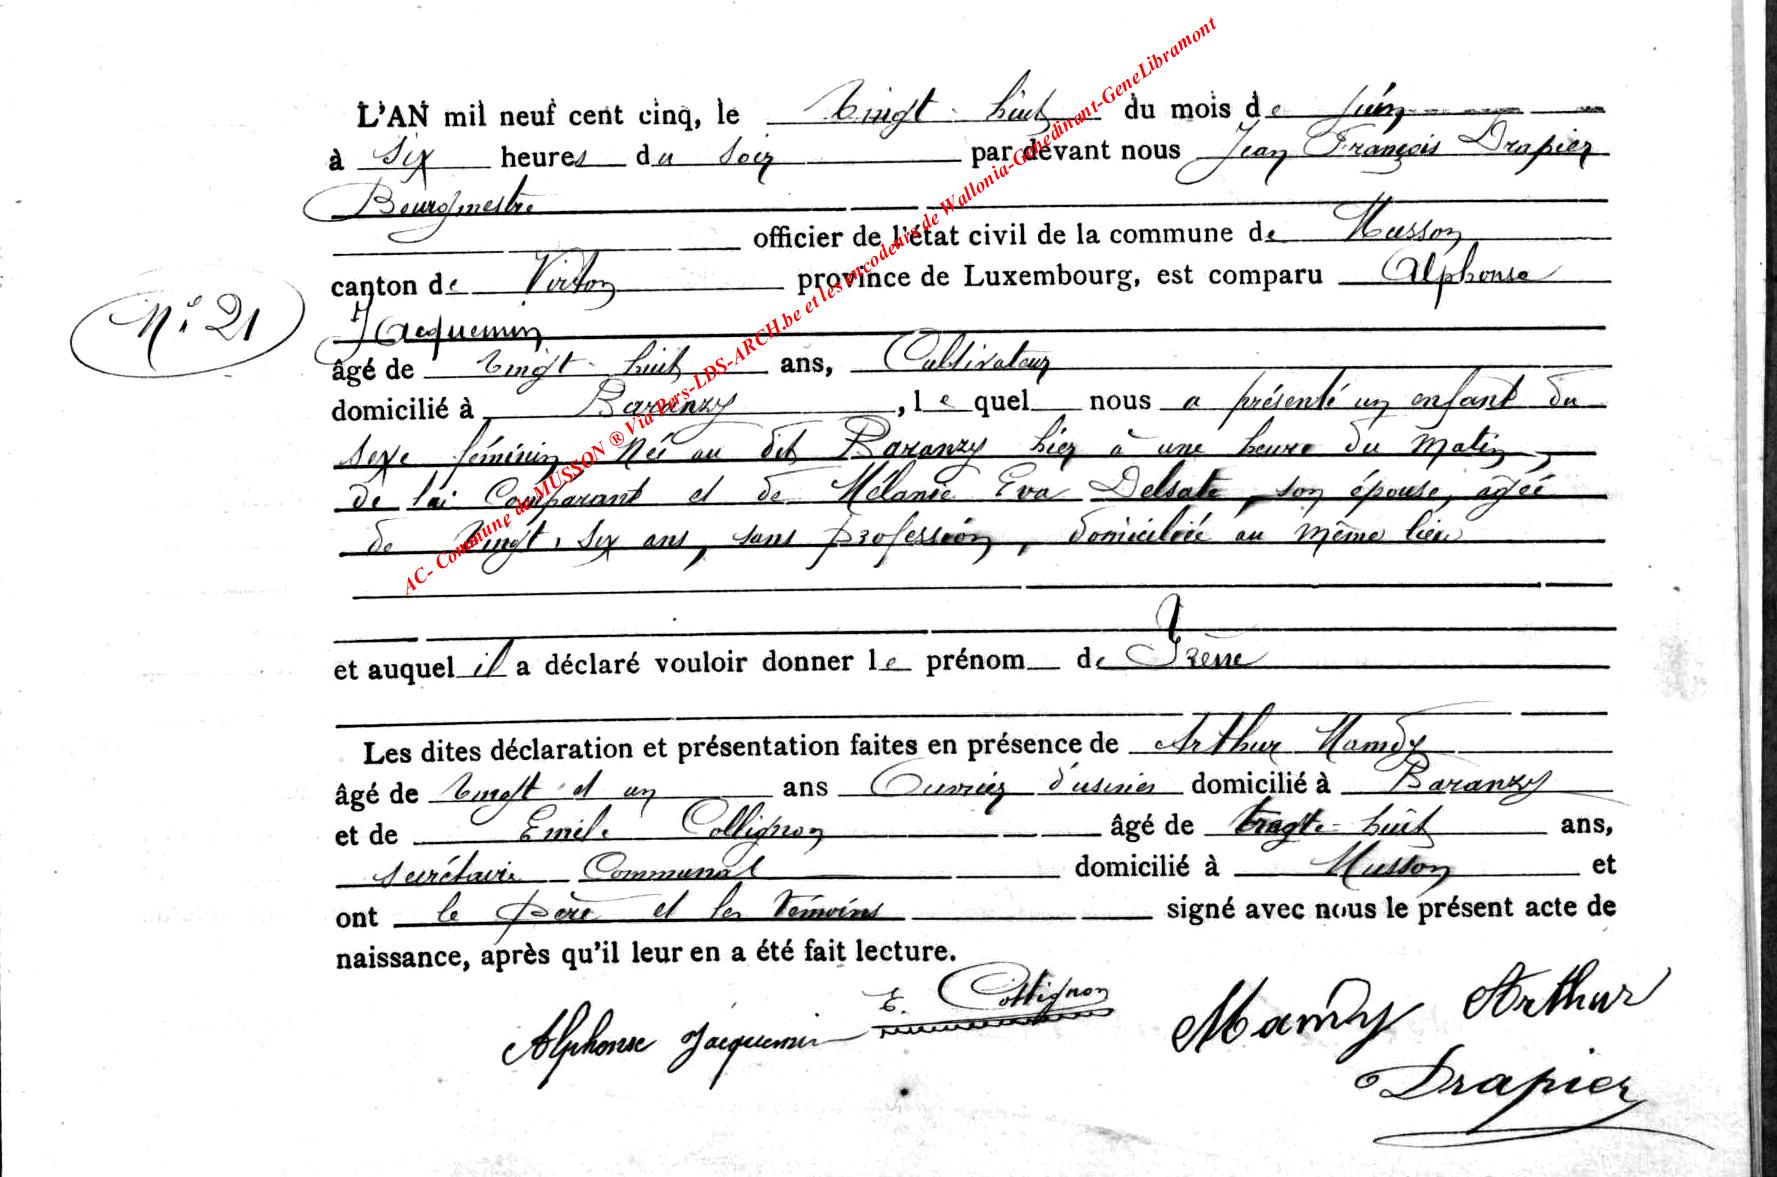 L'AN mil neuf cent cinq, le vingt-huit du mois de juin
à six heures du soir par devant nous Jean François Drapier
Bourgmestre
officier de l'état civil de la commune de Musson
canton de Virton province de Luxembourg, est comparu Alphonse
N° 21
Jacquemin
âgé de vingt-huit ans, Cultivateur
domicilié à Baranzy, le quel nous a présenté un enfant du
sexe féminin Née au dit Baranzy hier à une heure du matin,
de lui Comparant et de Mélanie Eva Delsate, son épouse, agée
de Vingt-six ans, sans profession, domiciliée au même lieu
et auquel il a déclaré vouloir donner le prénom de Irène
Les dites déclaration et présentation faites en présence de Arthur Mamdy
âgé de vingt et un ans Ouvrier d'usines domicilié à Baranzy
et de Emile Collignon âgé de huit ans,
secrétaire Communal domicilié à Musson et
ont le père et les témoins signé avec nous le présent acte de
naissance, après qu'il leur en a été fait lecture.
Alphonse Jacquemin E. Collignon Mamdy Arthur
Drapier
AC- Commune de MUSSON ® Via Pers-LDS-ARCH.be et les encodeurs de Wallonia-Genedinant-GeneLibramont